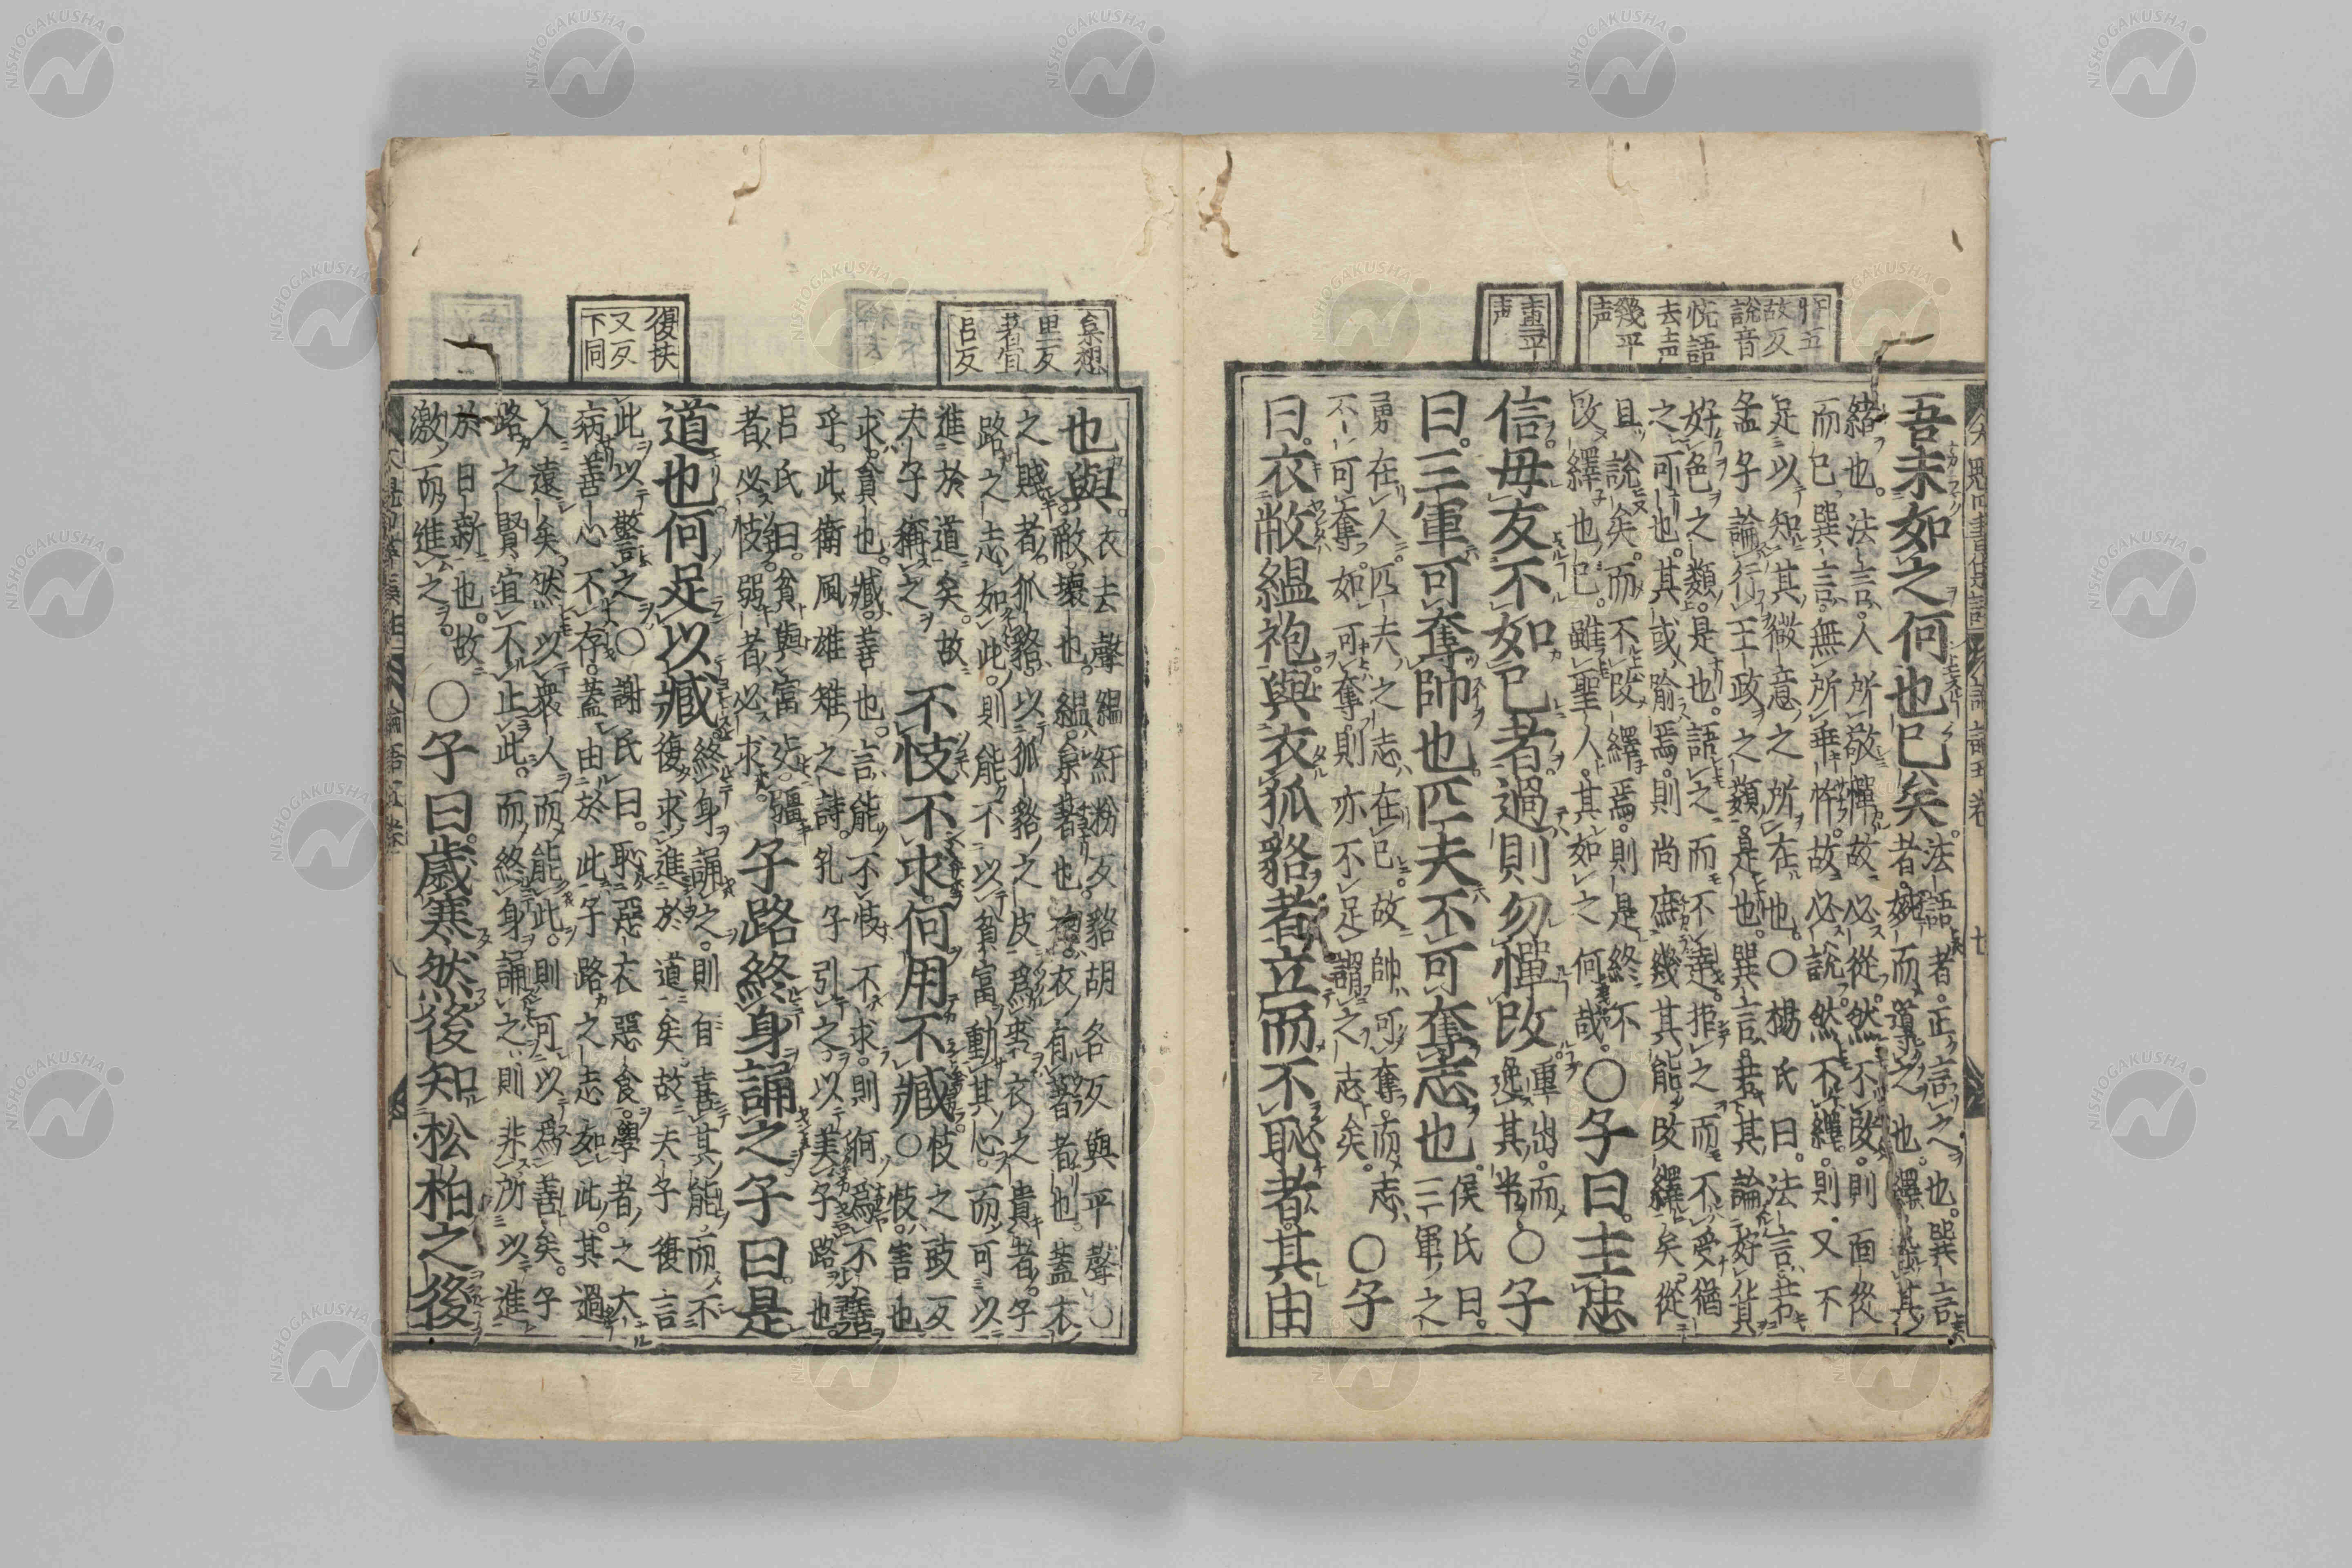 忤五
故反
説音
悅語
去声
幾平
声
重平
声
吾未如之何也已矣。
法語者。正言之也。巽言
者。婉而導之也。繹尋其
緒也。法言。人所敬憚。故必從。然不改。則面從
而已。巽言。無所乖忤。故必說。然不繹。則又不
足以知其微意之所在也。〇楊氏曰。法言。若
孟子論行王政之類。是也。巽言。若其論好貨
好色之類。是也。語之而不達。拒之而不受。猶
之可也。其或喻焉。則尚庶幾其能改繹矣。從
且說矣。而不改繹焉。則是終不
改繹也已。雖聖人。其如之何哉。
〇子曰。主忠
信毋友不如已者。過則勿憚改
重出。而
逸其半
〇子
曰。三軍可奪帥也匹夫不可奪志也。
侯氏曰。
三軍之
勇在人。匹夫之志在已。故帥可奪。而志
不可奪。如可奪。則亦不足謂之志矣。
〇子
曰。衣敝縕袍與衣狐貉者立而不恥者。其由
枲想
里反
著直
呂反
復扶
又反
下同
也與。
衣去聲縕紆粉反貉胡各反與平聲〇
敝。壞也。縕。枲著也。袍。衣有著者也。蓋衣
之賤者。狐貉。以狐貉之皮爲裘。衣之貴者。子
路之志如此。則能不以貧富動其心。而可以
進於道矣。故
夫子稱之
不忮不求。何用不臧
〇忮之豉反
忮。害也
求。貪也。臧。善也。言能不忮不求。則何爲不善
乎。此衛風雄雉之詩。孔子引之。以美子路也。
呂氏曰。貧與富交。彊
者必忮。弱者必求。
子路終身誦之子曰。是
道也何足以臧
終身誦之。則自喜其能。而不
復求進於道矣。故夫子復言
此以警之〇謝氏曰。恥惡衣惡食。學者之大
病。善心不存。蓋由於此。子路之志如此。其過
人遠矣。然以衆人而能此。則可以爲善矣。子
路之賢宜不止此。而終身誦之。則非所以進
於日新也。故
激而進之。
〇子曰。歲寒然後知松柏之後
NISHOGAKUSHA